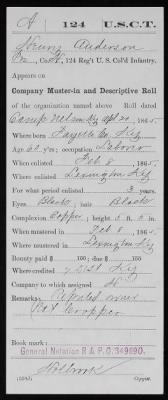 A 124 U.S.C.T.
Anderson
Co. , 124 Reg't U. S. Col'd Infantry.
Appears on
Company Muster-in and Descriptive Roll
of the organization named above. Roll dated
Camp Nelson Ky Apl 20, 1865.
Where born Fayette Co, Ky
Age 60 y'rs; occupation Laborer
When enlisted Feb 8, 1865.
Where enlisted Lexington Ky
For what period enlisted 3 years.
Eyes Black; hair Black
Complexion Copper; height 5 ft. 5 in.
When mustered in Feb 8, 1865.
Where mustered in Lexington Ky
Bounty paid $ 100; due $ 100
Where credited 7 Dist Ky
Company to which assigned
Remarks: owner
Cropper
Book mark:
General Notation R & P O. 349690.
Holbrook
Copyist.